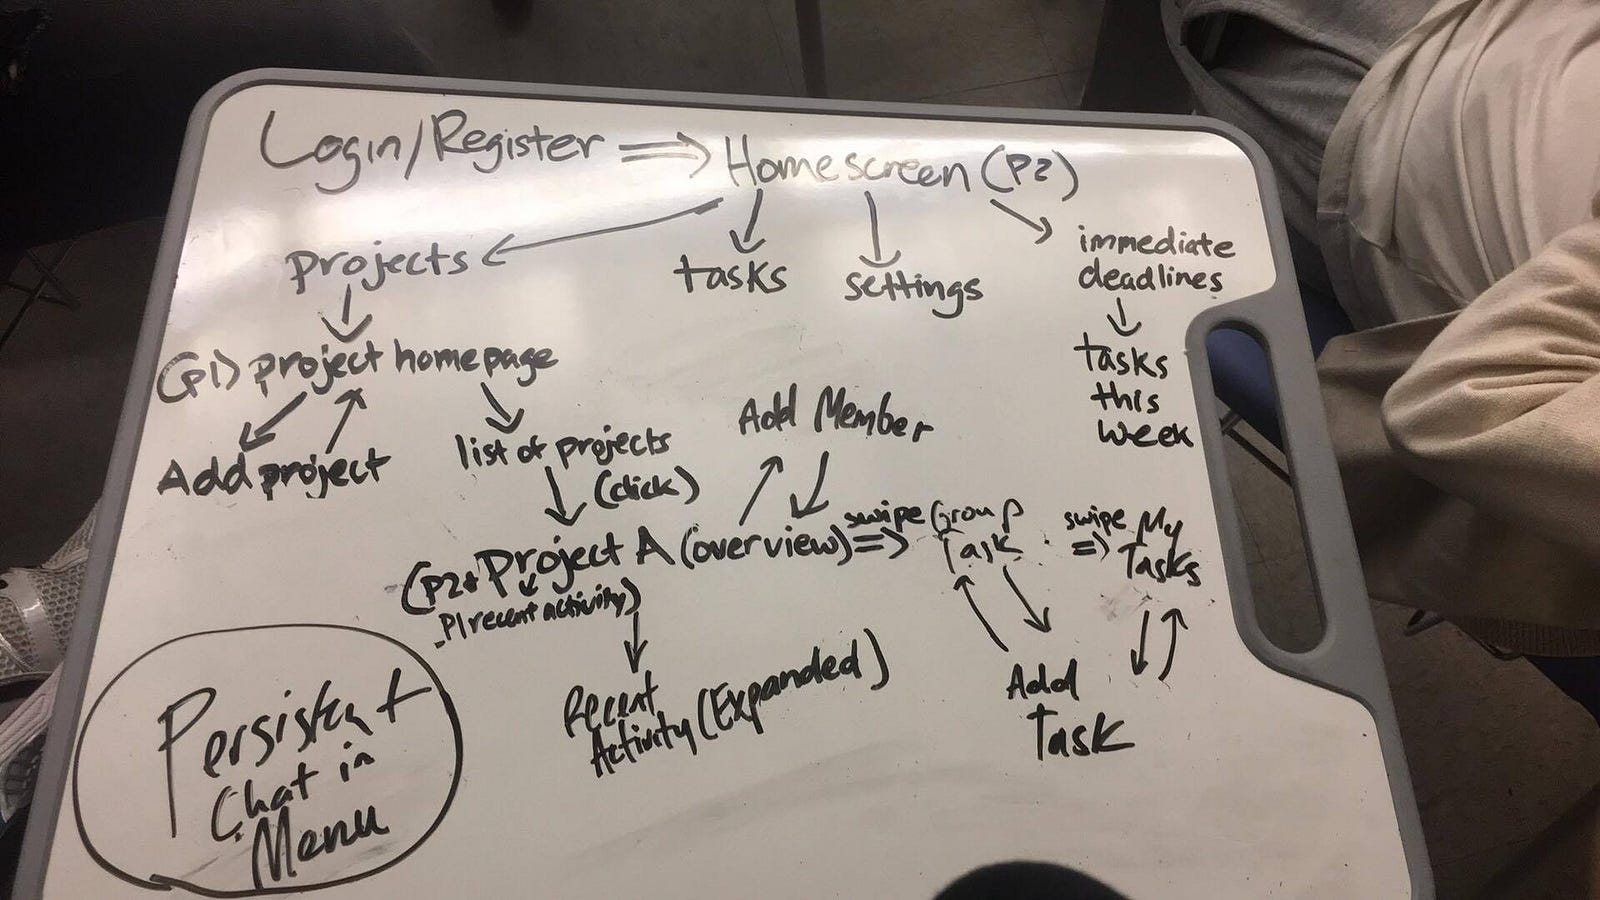 Login/Register ⇒ Homescreen (P2)
projects
tasks
settings
immediate
deadlines
tasks
this
week
(p1) project homepage
Add project
list of projects
(click)
Add Member
(P2+ Project A (overview) ⇒ swipe Group
Task
swipe ⇒ My
Tasks
P1 recent activity)
Recent
Activity (Expanded)
Add
Task
Persistent
Chat in
Menu